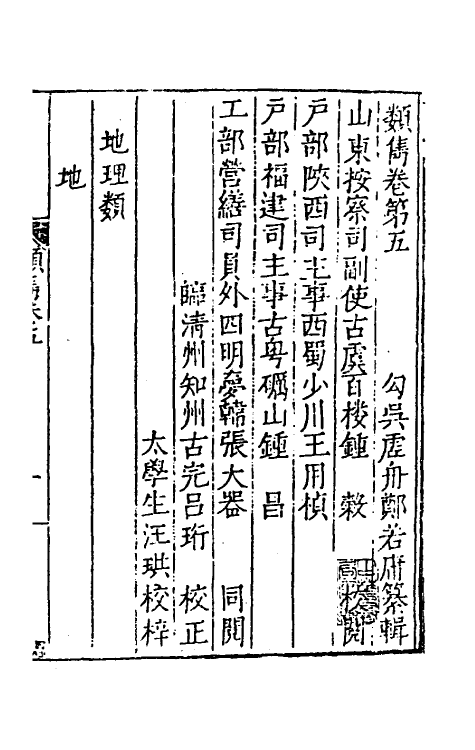 類雋卷第五 勾吳虛舟鄭若庸纂輯
山東按察司副使古虞百樓鍾 穀 校閱
戶部陝西司主事西蜀少川王用楨
戶部福建司主事古粵礪山鍾 昌
工部營繕司員外四明夢韓張大器 同閱
臨清州知州古完呂珩 校正
太學生汪珙校梓
地理類
地